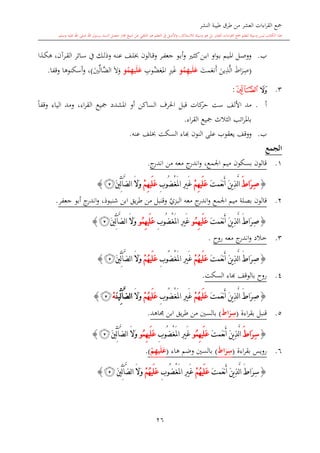 جمع القراءات العشر من طرق طيبة النشر
ب. ووصل الميم بواو ابن كثير وأبو جعفر وقالون بخلف عنه وذلك في سائر القرآن، هكذا
(صِرَاطَ الَّذِينَ أَنْعَمْتَ عَلَيْهِمُو غَيْرِ الْمَغْضُوبِ عَلَيْهِمُو وَلَا الضَّالِّينَ)، وأسكنوها وقفا.
٣. وَلَا الضَّآلِّينَ :
أ. مد الألف ست حركات قبل الحرف الساكن أو المشدد جميع القراء، ومد الياء وقفاً
بالمراتب الثلاث جميع القراء.
ب. ووقف يعقوب على النون بهاء السكت بخلف عنه.
الجمع
١. قالون بسكون ميم الجمع، واندرج معه من اندرج.
﴿ صِرَاطَ الَّذِينَ أَنْعَمْتَ عَلَيْهِمْ غَيْرِ الْمَغْضُوبِ عَلَيْهِمْ وَلَا الضَّآلِّينَ ٧ ﴾
٢. قالون بصلة ميم الجمع واندرج معه البزيّ وقنبل من طريق ابن شنبوذ، واندرج أبو جعفر.
﴿ صِرَاطَ الَّذِينَ أَنْعَمْتَ عَلَيْهِمُو غَيْرِ الْمَغْضُوبِ عَلَيْهِمُو وَلَا الضَّآلِّينَ ٧ ﴾
٣. خلاد واندرج معه روح .
﴿ صِرَاطَ الَّذِينَ أَنْعَمْتَ عَلَيْهُمْ غَيْرِ الْمَغْضُوبِ عَلَيْهُمْ وَلَا الضَّآلِّينَ ٧ ﴾
٤. روح بالوقف بهاء السكت.
﴿ صِرَاطَ الَّذِينَ أَنْعَمْتَ عَلَيْهُمْ غَيْرِ الْمَغْضُوبِ عَلَيْهُمْ وَلَا الضَّآلِّينَهْ ٧ ﴾
٥. قنبل بقراءة (سِرَاطَ) بالسين من طريق ابن مجاهد.
﴿ سِرَاطَ الَّذِينَ أَنْعَمْتَ عَلَيْهِمُو غَيْرِ الْمَغْضُوبِ عَلَيْهِمُو وَلَا الضَّآلِّينَ ٧ ﴾
٦. رويس بقراءة (سِرَاطَ) بالسين وضم هاء (عَلَيْهُمْ).
﴿ سِرَاطَ الَّذِينَ أَنْعَمْتَ عَلَيْهُمْ غَيْرِ الْمَغْضُوبِ عَلَيْهُمْ وَلَا الضَّآلِّينَ ٧ ﴾
٢٦